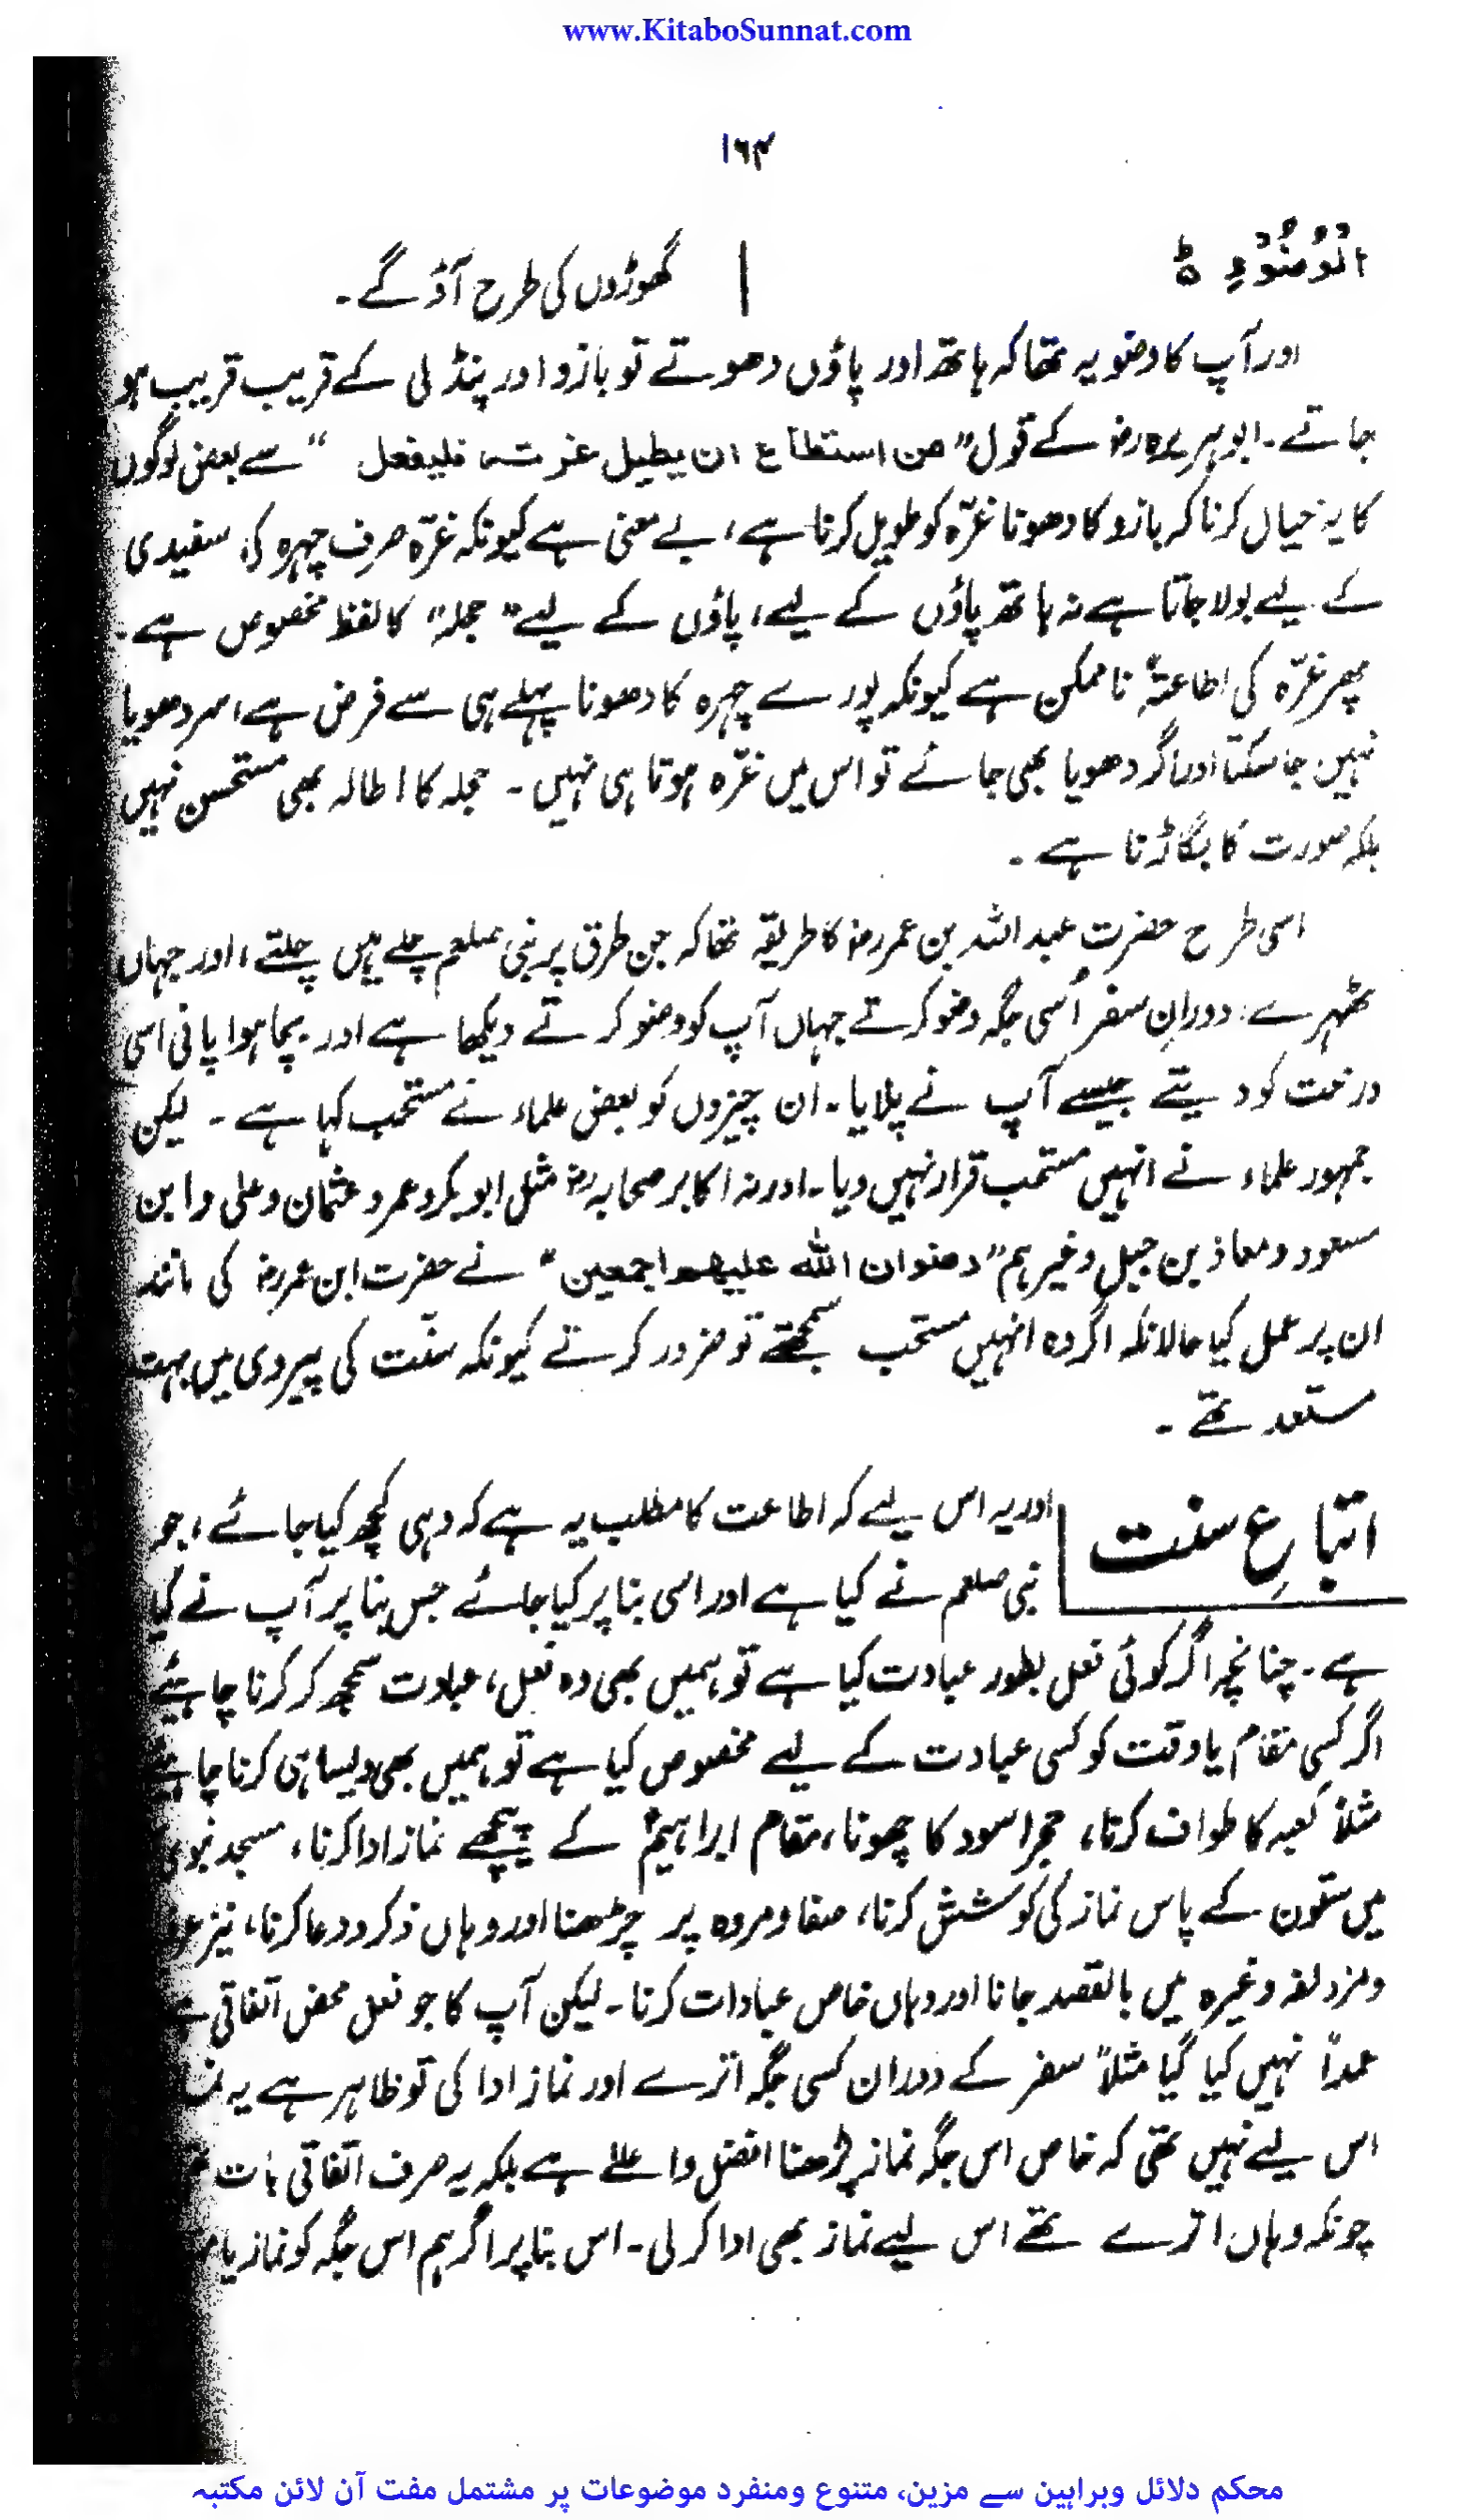 www.KitaboSunnat.com
۱۶۴
الْوُضُوْءِ ؕ | گھوڑوں کی طرح آؤ گے۔
اور آپ کا وضو یہ تھا کہ ہاتھ اور پاؤں دھوتے تو بازو اور پنڈلی کے قریب قریب ہو
جاتے۔ ابوہریرہ رضؓ کے قول "من استطاع ان يطيل غرته فليفعل" سے بعض لوگوں
کا یہ خیال کرنا کہ بازو کا دھونا غرّہ کو طویل کرنا ہے، بے معنی ہے کیونکہ غرّہ صرف چہرہ کی سفیدی
کے لیے بولا جاتا ہے نہ ہاتھ پاؤں کے لیے، پاؤں کے لیے "حجلہ" کا لفظ مخصوص ہے۔
پھر غرّہ کی اطاعۃً ناممکن ہے کیونکہ پورے چہرہ کا دھونا پہلے ہی سے فرض ہے، سر دھویا
نہیں جا سکتا اور اگر دھویا بھی جائے تو اس میں غرّہ ہوتا ہی نہیں۔ حجلہ کا اطالہ بھی مستحسن نہیں
بلکہ صورت کا بگاڑنا ہے۔
اسی طرح حضرت عبداللہ بن عمر رضؓ کا طریقہ تھا کہ جن طرق پر نبی صلعم چلے ہیں چلتے، اور جہاں
ٹھہرے، دورانِ سفر اُسی جگہ وضو کرتے جہاں آپ کو وضو کرتے دیکھا ہے اور بچا ہوا پانی اسی
درخت کو دیتے جیسے آپ نے پلایا۔ ان چیزوں کو بعض علماء نے مستحب کہا ہے۔ لیکن
جمہور علماء نے انہیں مستحب قرار نہیں دیا۔ اور نہ اکابر صحابہ رضؓ مثل ابوبکر و عمر و عثمان و علی و ابن
مسعود و معاذ بن جبل وغیرہم "رضوان الله عليهم اجمعين" نے حضرت ابن عمر رضؓ کی مانند
ان پر عمل کیا حالانکہ اگر وہ انہیں مستحب سمجھتے تو ضرور کرتے کیونکہ سنّت کی پیروی میں بہت
مستعد تھے۔
اتباعِ سنت
اور یہ اس لیے کہ اطاعت کا مطلب یہ ہے کہ وہی کچھ کیا جائے، جو
نبی صلعم نے کیا ہے اور اسی بنا پر کیا جائے جس بنا پر آپ نے کیا
ہے۔ چنانچہ اگر کوئی فعل بطور عبادت کیا ہے تو ہمیں بھی وہ فعل، عبادت سمجھ کر کرنا چاہیئے
اگر کسی مقام یا وقت کو کسی عبادت کے لیے مخصوص کیا ہے تو ہمیں بھی ویسا ہی کرنا چاہیئے
مثلاً کعبہ کا طواف کرنا، حجر اسود کا چھونا، مقام ابراہیمؑ کے پیچھے نماز ادا کرنا، مسجد نبوی
میں ستون کے پاس نماز کی کوشش کرنا، صفا و مروہ پر چڑھنا اور وہاں ذکر و دعا کرنا، نیز
ومزدلفہ وغیرہ میں بالقصد جانا اور وہاں خاص عبادات کرنا۔ لیکن آپ کا جو فعل محض اتفاقی ہے
عمداً نہیں کیا گیا مثلاً سفر کے دوران کسی جگہ اترے اور نماز ادا کی تو ظاہر ہے یہ
اس لیے نہیں تھی کہ خاص اس جگہ نماز پڑھنا افضل واعلےٰ ہے بلکہ یہ صرف اتفاقی بات
چونکہ وہاں اترے تھے اس لیے نماز بھی ادا کر لی۔ اس بنا پر اگر ہم اس جگہ کو نماز یا
محکم دلائل وبراہین سے مزین، متنوع ومنفرد موضوعات پر مشتمل مفت آن لائن مکتبہ